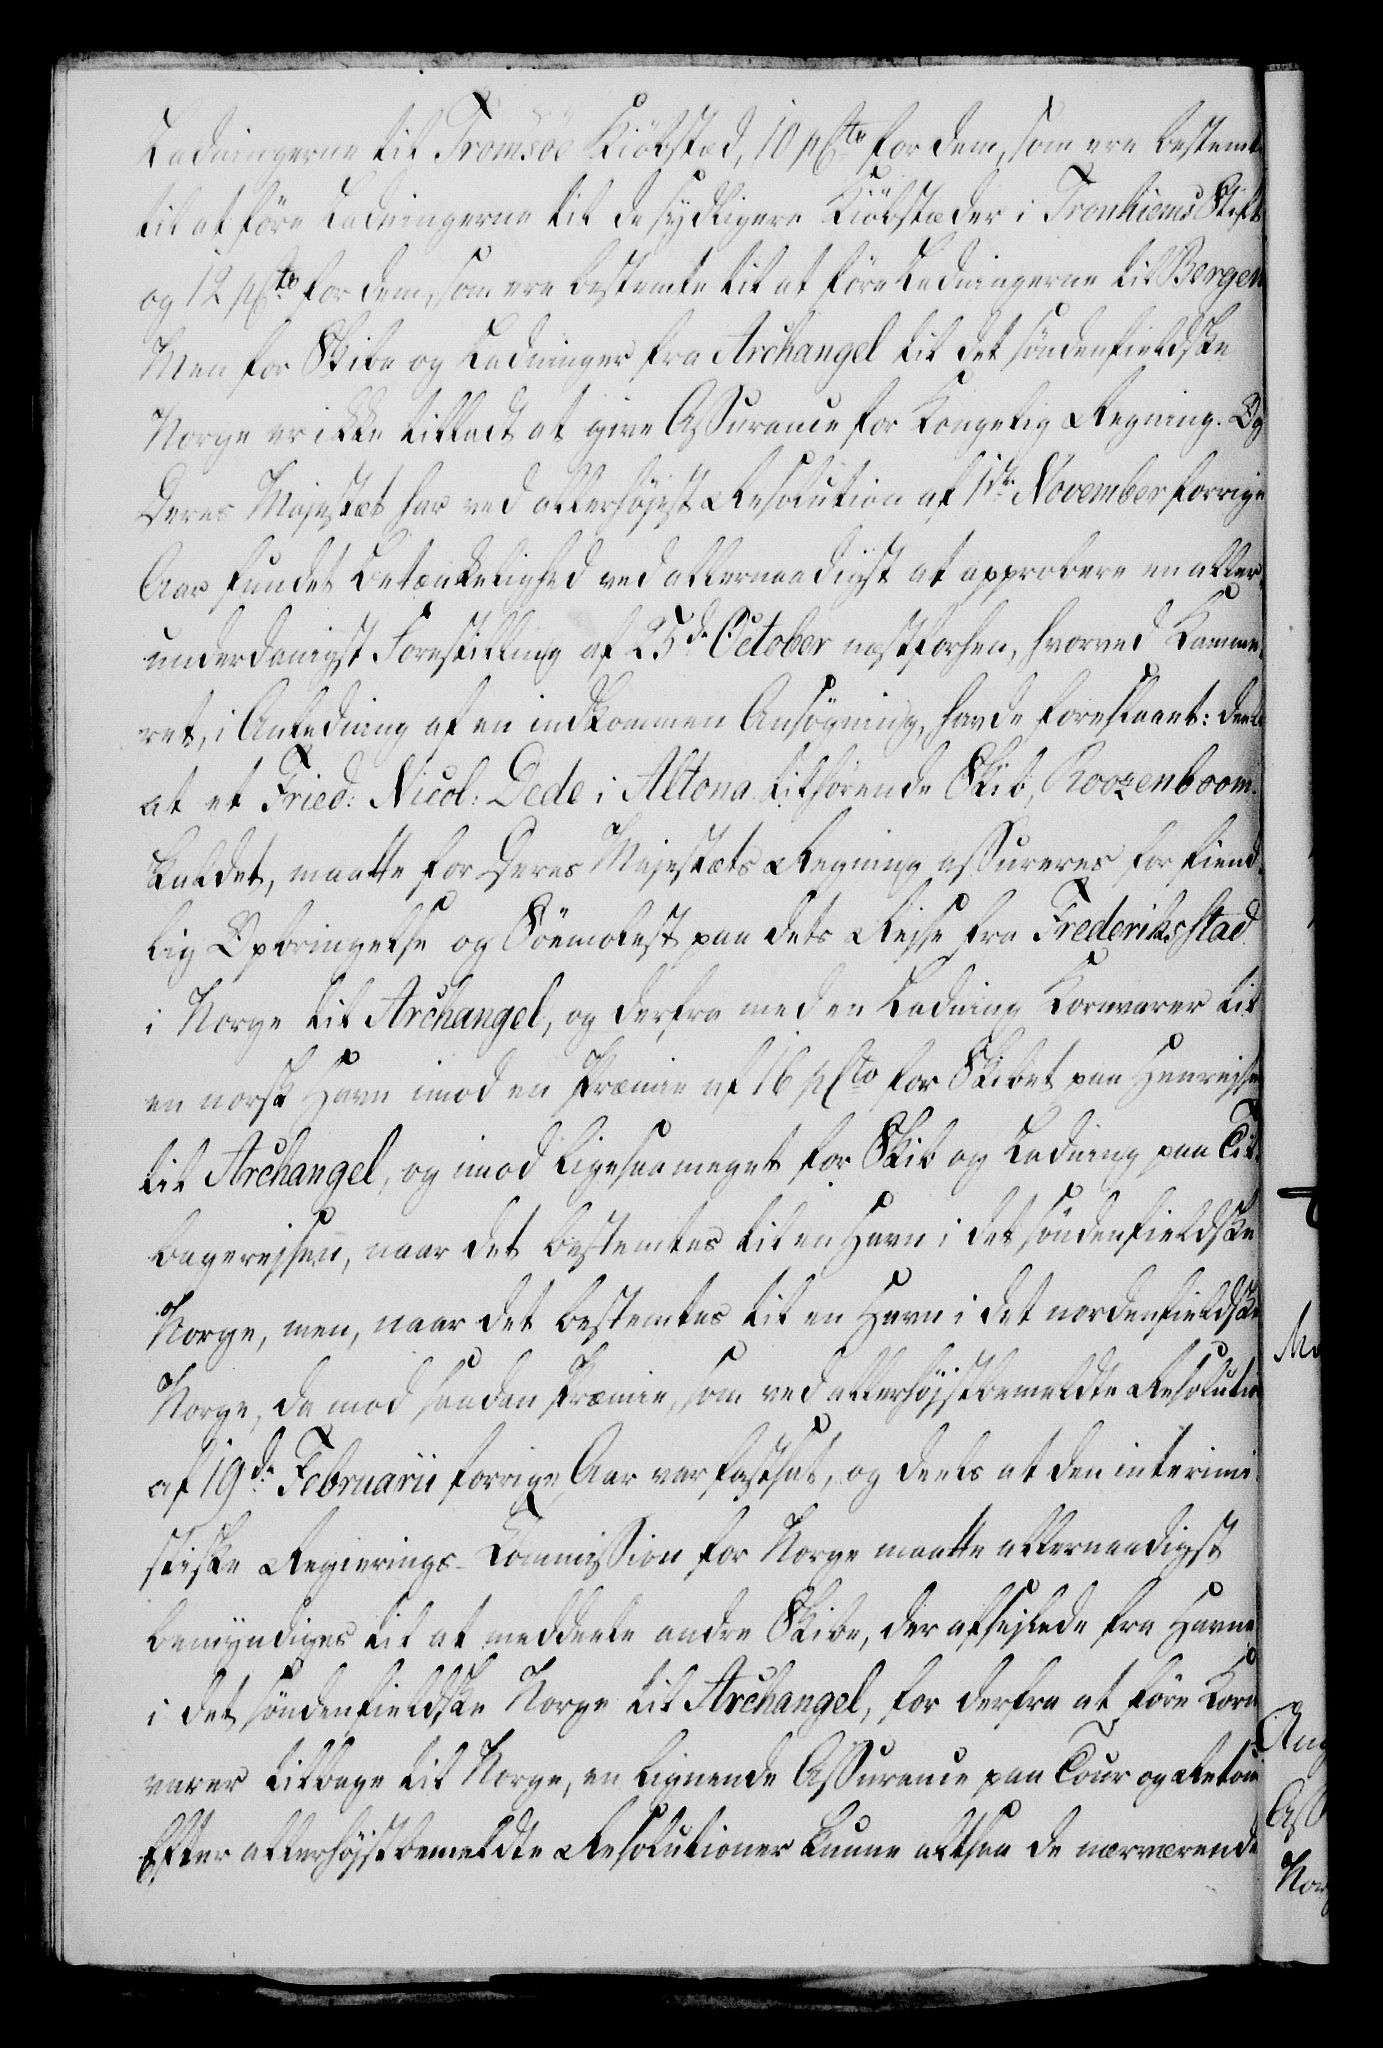 Ladningerne til Tromsöe Kiöbstad, 10 pCto for dem, som ere bestemte
til at före Ladningerne til de sydligere Kiöbstæder i Tronhiems Stift
og 12 pCto for dem, som ere bestemte til at före Ladningerne til Bergen
Men for Skibe og Ladninger fra Archangel til det söndenfieldske
Norge er ikke tilladt at give Assurance for Kongelig Regning. Og
Deres Majestæt har ved allerhöjest Resolution af 1ste November forrige
Aar fundet Betænkelighed ved allernaadigst at approbere en aller-
underdanigst Forestilling af 25de October næstforhen, hvorved Kamme-
ret, i Anledning af en indkommen Ansögning, havde forestaaet: deels
at et Fried: Nicol: Dede i Altona tilhörende Skib, Roozenboom
kaldet, maatte for Deres Majestæts Regning assureres for fiend-
lig Opbringelse og Söemolest paa dets Rejse fra Frederiksstad
i Norge til Archangel, og derfra med en Ladning Kornvarer til
en norsk Havn imod en Præmie af 16 pCto for Skibet paa Henrejsen
til Archangel, og imod ligesaameget for Skib og Ladning paa Til-
bagerejsen, naar det bestemtes til en Havn i det söndenfieldske
Norge, men, naar det bestemtes til en Havn i det nordenfieldske
Norge, da mod saadan Præmie, som ved allerhöjstbemeldte Resolution
af 19de Februarii forrige Aar var fastsat, og deels at den interimi-
stiske Regierings-Commission for Norge maatte allernaadigst
bemyndiges til at meddeele andre Skibe, der afsejlede fra Havne
i det söndenfieldske Norge til Archangel, for derfra at före Korn-
varer tilbage til Norge, en lignende Assurance paa Tour og Retour
Efter allerhöjstbemeldte Resolutioner kunne altsaa de nærværende